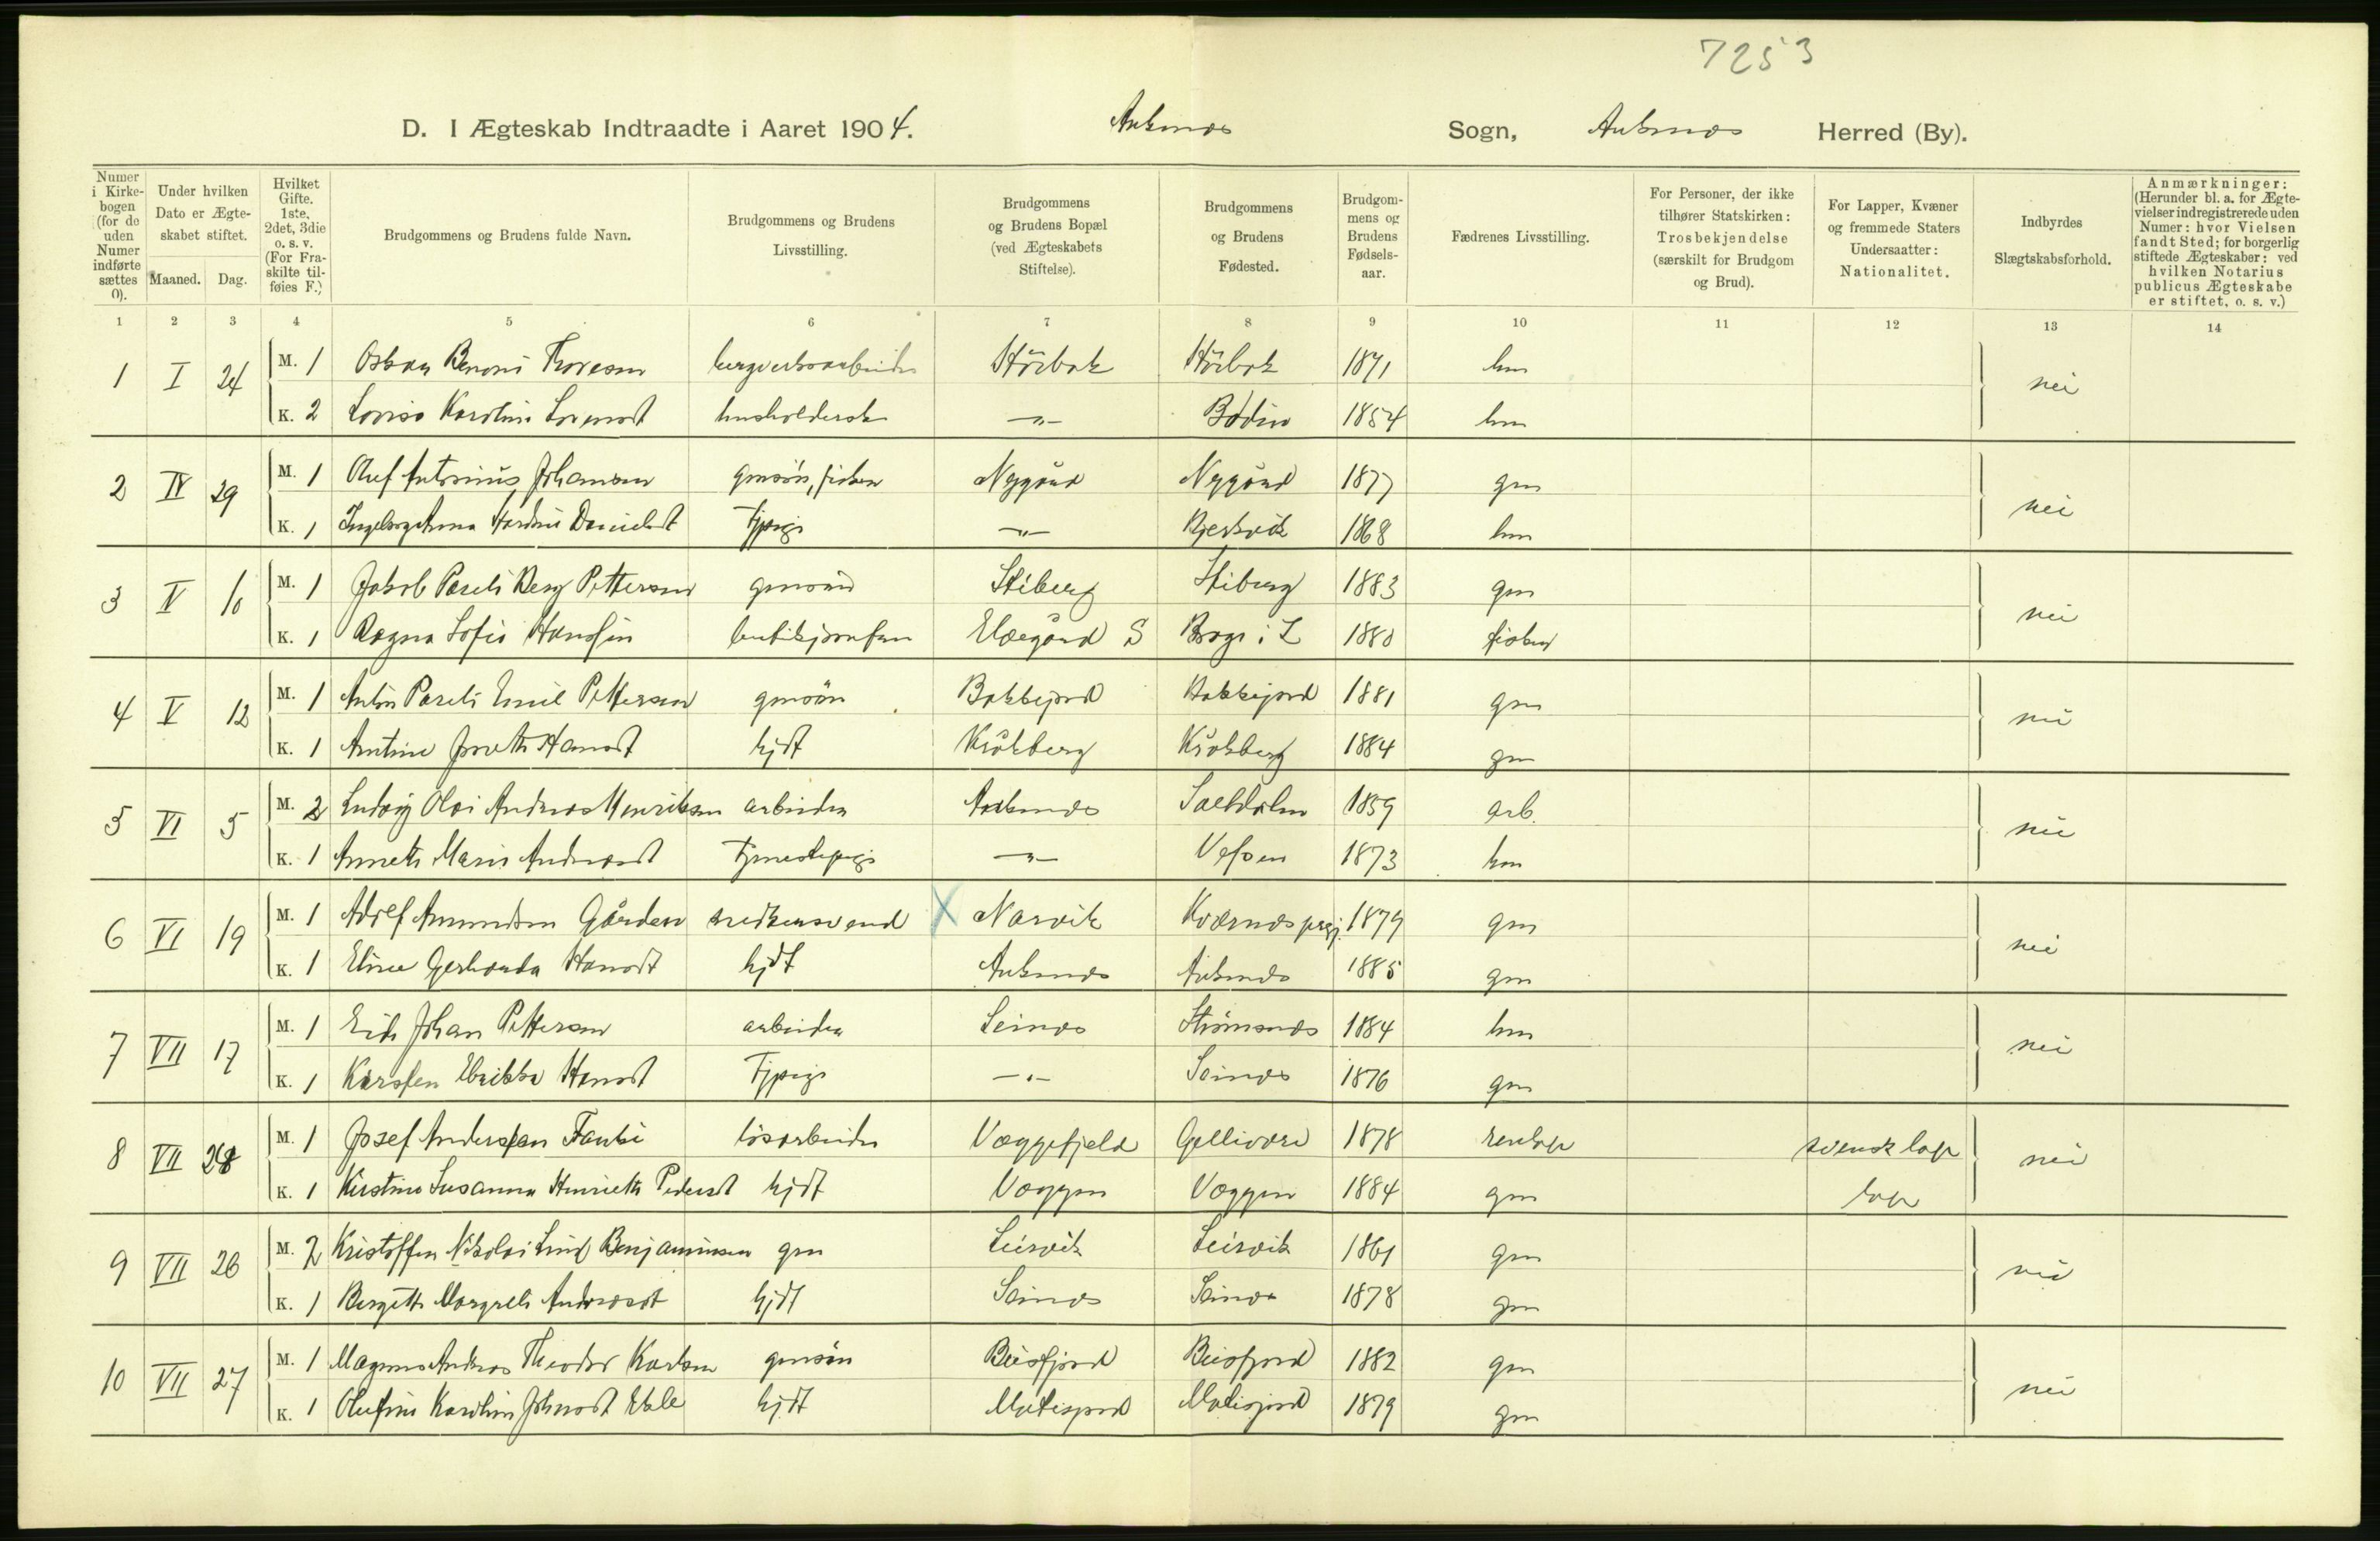 7253
D. I Ægteskab Indtraadte i Aaret 1904. Ankenæs Sogn, Ankenæs Herred (By).
Numer i Kirkebogen (for de uden Numer indførte sættes 0).
Under hvilken Dato er Ægteskabet stiftet.
Maaned. Dag.
Hvilket Gifte. 1ste, 2det, 3die o. s. v. (For Fraskilte tilføies F.)
Brudgommens og Brudens fulde Navn.
Brudgommens og Brudens Livsstilling.
Brudgommens og Brudens Bopæl (ved Ægteskabets Stiftelse).
Brudgommens og Brudens Fødested.
Brudgommens og Brudens Fødselsaar.
Fædrenes Livsstilling.
For Personer, der ikke tilhører Statskirken: Trosbekjendelse (særskilt for Brudgom og Brud).
For Lapper, Kvæner og fremmede Staters Undersaatter: Nationalitet.
Indbyrdes Slægtskabsforhold.
Anmærkninger: (Herunder bl. a. for Ægtevielser indregistrerede uden Numer: hvor Vielsen fandt Sted; for borgerlig stiftede Ægteskaber: ved hvilken Notarius publicus Ægteskabe er stiftet, o. s. v.)
1 2 3 4 5 6 7 8 9 10 11 12 13 14
1 I 24 M. 1 Oskar Benoni Thoresen bergverksarbeider 1871 hm nei
K. 2 Lovise Karoline husholderske -"- Bodin 1854 hm
2 IV 29 M. 1 Oluf Antonius Johansen gmsön, fisker Nygård Nygård 1877 gm nei
K. 1 Ingeborg Anna Danielsdt Tjpige -"- Bjerkvik 1868 hm
3 V 10 M. 1 Jakob Pareli Berg Pettersen gmsön Stiberg Stiberg 1883 gm nei
K. 1 Ragna Sofie Hanssen butikjomfru Elvegård S Borge i L 1880 fisker
4 V 12 M. 1 Anton Pareli Emil Pettersen gmsön Bakkejord Bakkejord 1881 gm nei
K. 1 Antine hjdt Kråkberg Kråkberg 1884 gm
5 VI 5 M. 2 Ludvig Olai Andreas Henriksen arbeider Ankenæs Saltdalen 1859 arb. nei
K. 1 Annete Marie Andreasdt Tjenestepige -"- Vefsen 1873 hm
6 VI 19 M. 1 Adolf Amundsen Gården snedkersvend X Narvik Kværnæs prgj. 1879 gm nei
K. 1 Eline Gerharda Hansdt hjdt Ankenæs Ankenæs 1885 gm
7 VII 17 M. 1 Erik Johan Pettersen arbeider Leinæs Strömsnæs 1884 hm nei
K. 1 Hansdt Tjpige -"- Leinæs 1876 gm
8 VII 24 M. 1 Josef Anderssen lösarbeider Væggefjeld Gellivare 1878 renlap svensk lap nei
K. 1 Kirstine Susanna Henriette Pedersdt hjdt Væggen Væggen 1884 gm lap
9 VII 26 M. 2 Kristoffer Nikolai Lind Benjaminsen gm Leirvik Leirvik 1861 gm nei
K. 1 Bergitte Margrete Andreasdt hjdt Leinæs Leinæs 1878 gm
10 VII 27 M. 1 Magnus Andreas Theodor Karlsen gmsön Beisfjord Beisfjord 1882 gm nei
K. 1 Olufine Karoline Johnsdt hjdt 1879 gm